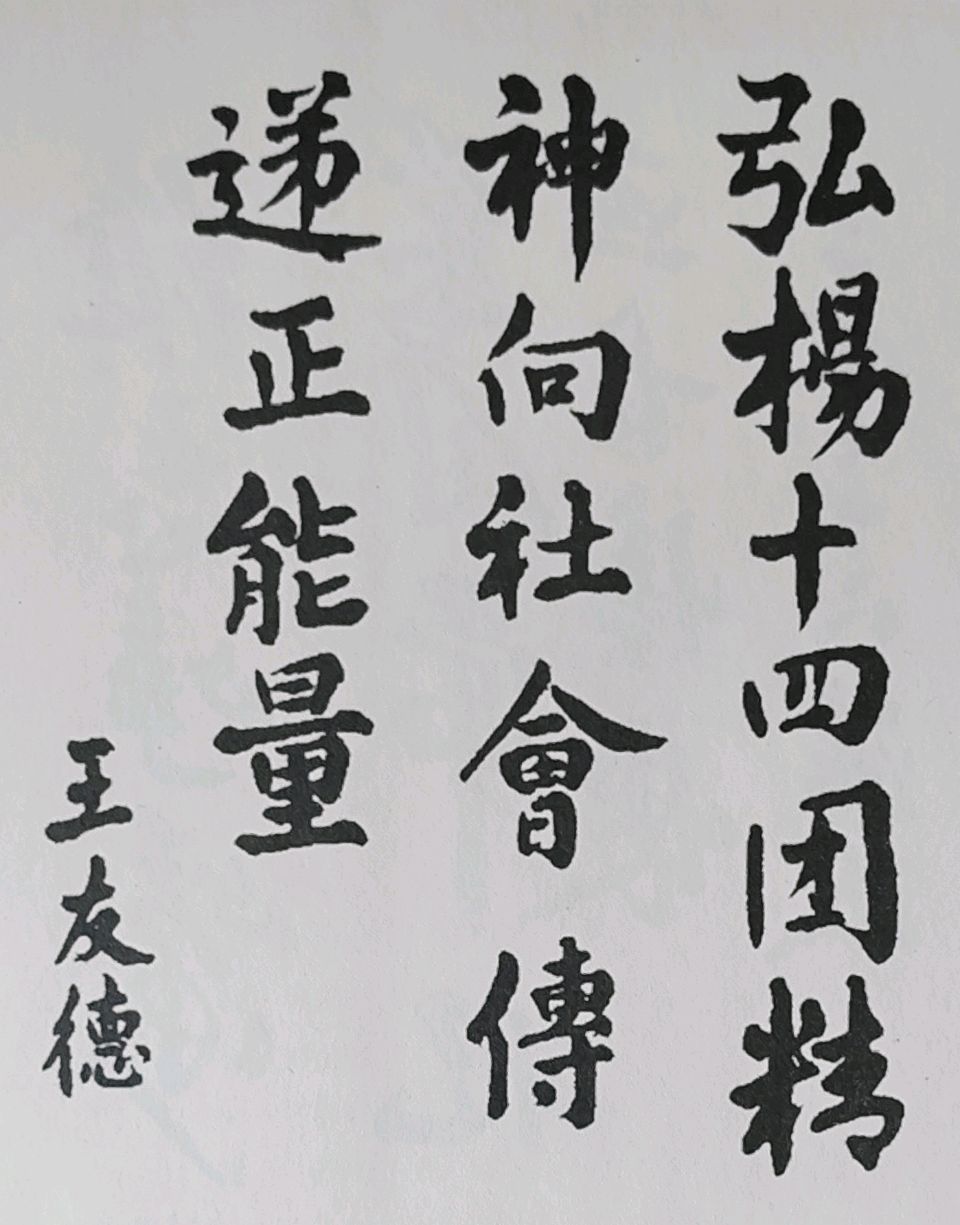 弘楊十四团精
神向社會傳
递正能量
王友德